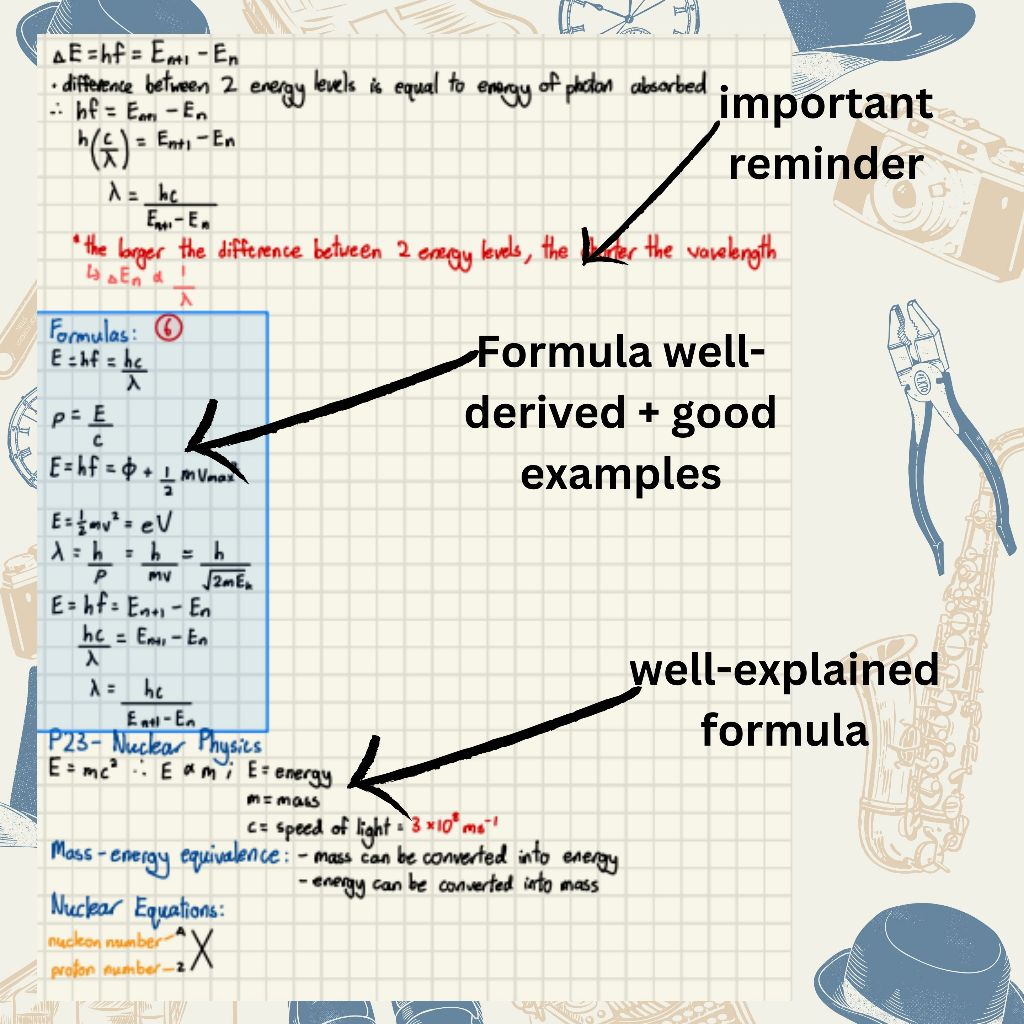 ΔE = hf = Eₙ₊₁ − Eₙ
· difference between 2 energy levels is equal to energy of photon absorbed
∴ hf = Eₙ₊₁ − Eₙ
h(c/λ) = Eₙ₊₁ − Eₙ
λ = hc / (Eₙ₊₁ − Eₙ)
important
reminder
*the larger the difference between 2 energy levels, the shorter the wavelength
↳ ΔEₙ ∝ 1/λ
Formulas: ⑥
E = hf = hc/λ
p = E/c
E = hf = ϕ + 1/2 mVmax
E = ½mv² = eV
λ = h/p = h/mv = h/√(2mEₖ)
E = hf = Eₙ₊₁ − Eₙ
hc/λ = Eₙ₊₁ − Eₙ
λ = hc / (Eₙ₊₁ − Eₙ)
Formula well-
derived + good
examples
P23- Nuclear Physics
E = mc² ∴ E ∝ m ; E = energy
m = mass
c = speed of light = 3 × 10⁸ ms⁻¹
well-explained
formula
Mass-energy equivalence: - mass can be converted into energy
- energy can be converted into mass
Nuclear Equations:
nucleon number — A X
proton number — Z